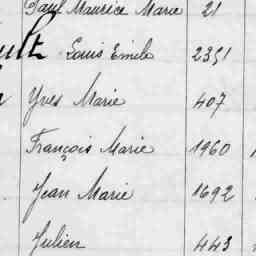 Paul Maurice Marie 21
Louis Emile 2351
Yves Marie 407
François Marie 1960
Jean Marie 1692
Julien 443